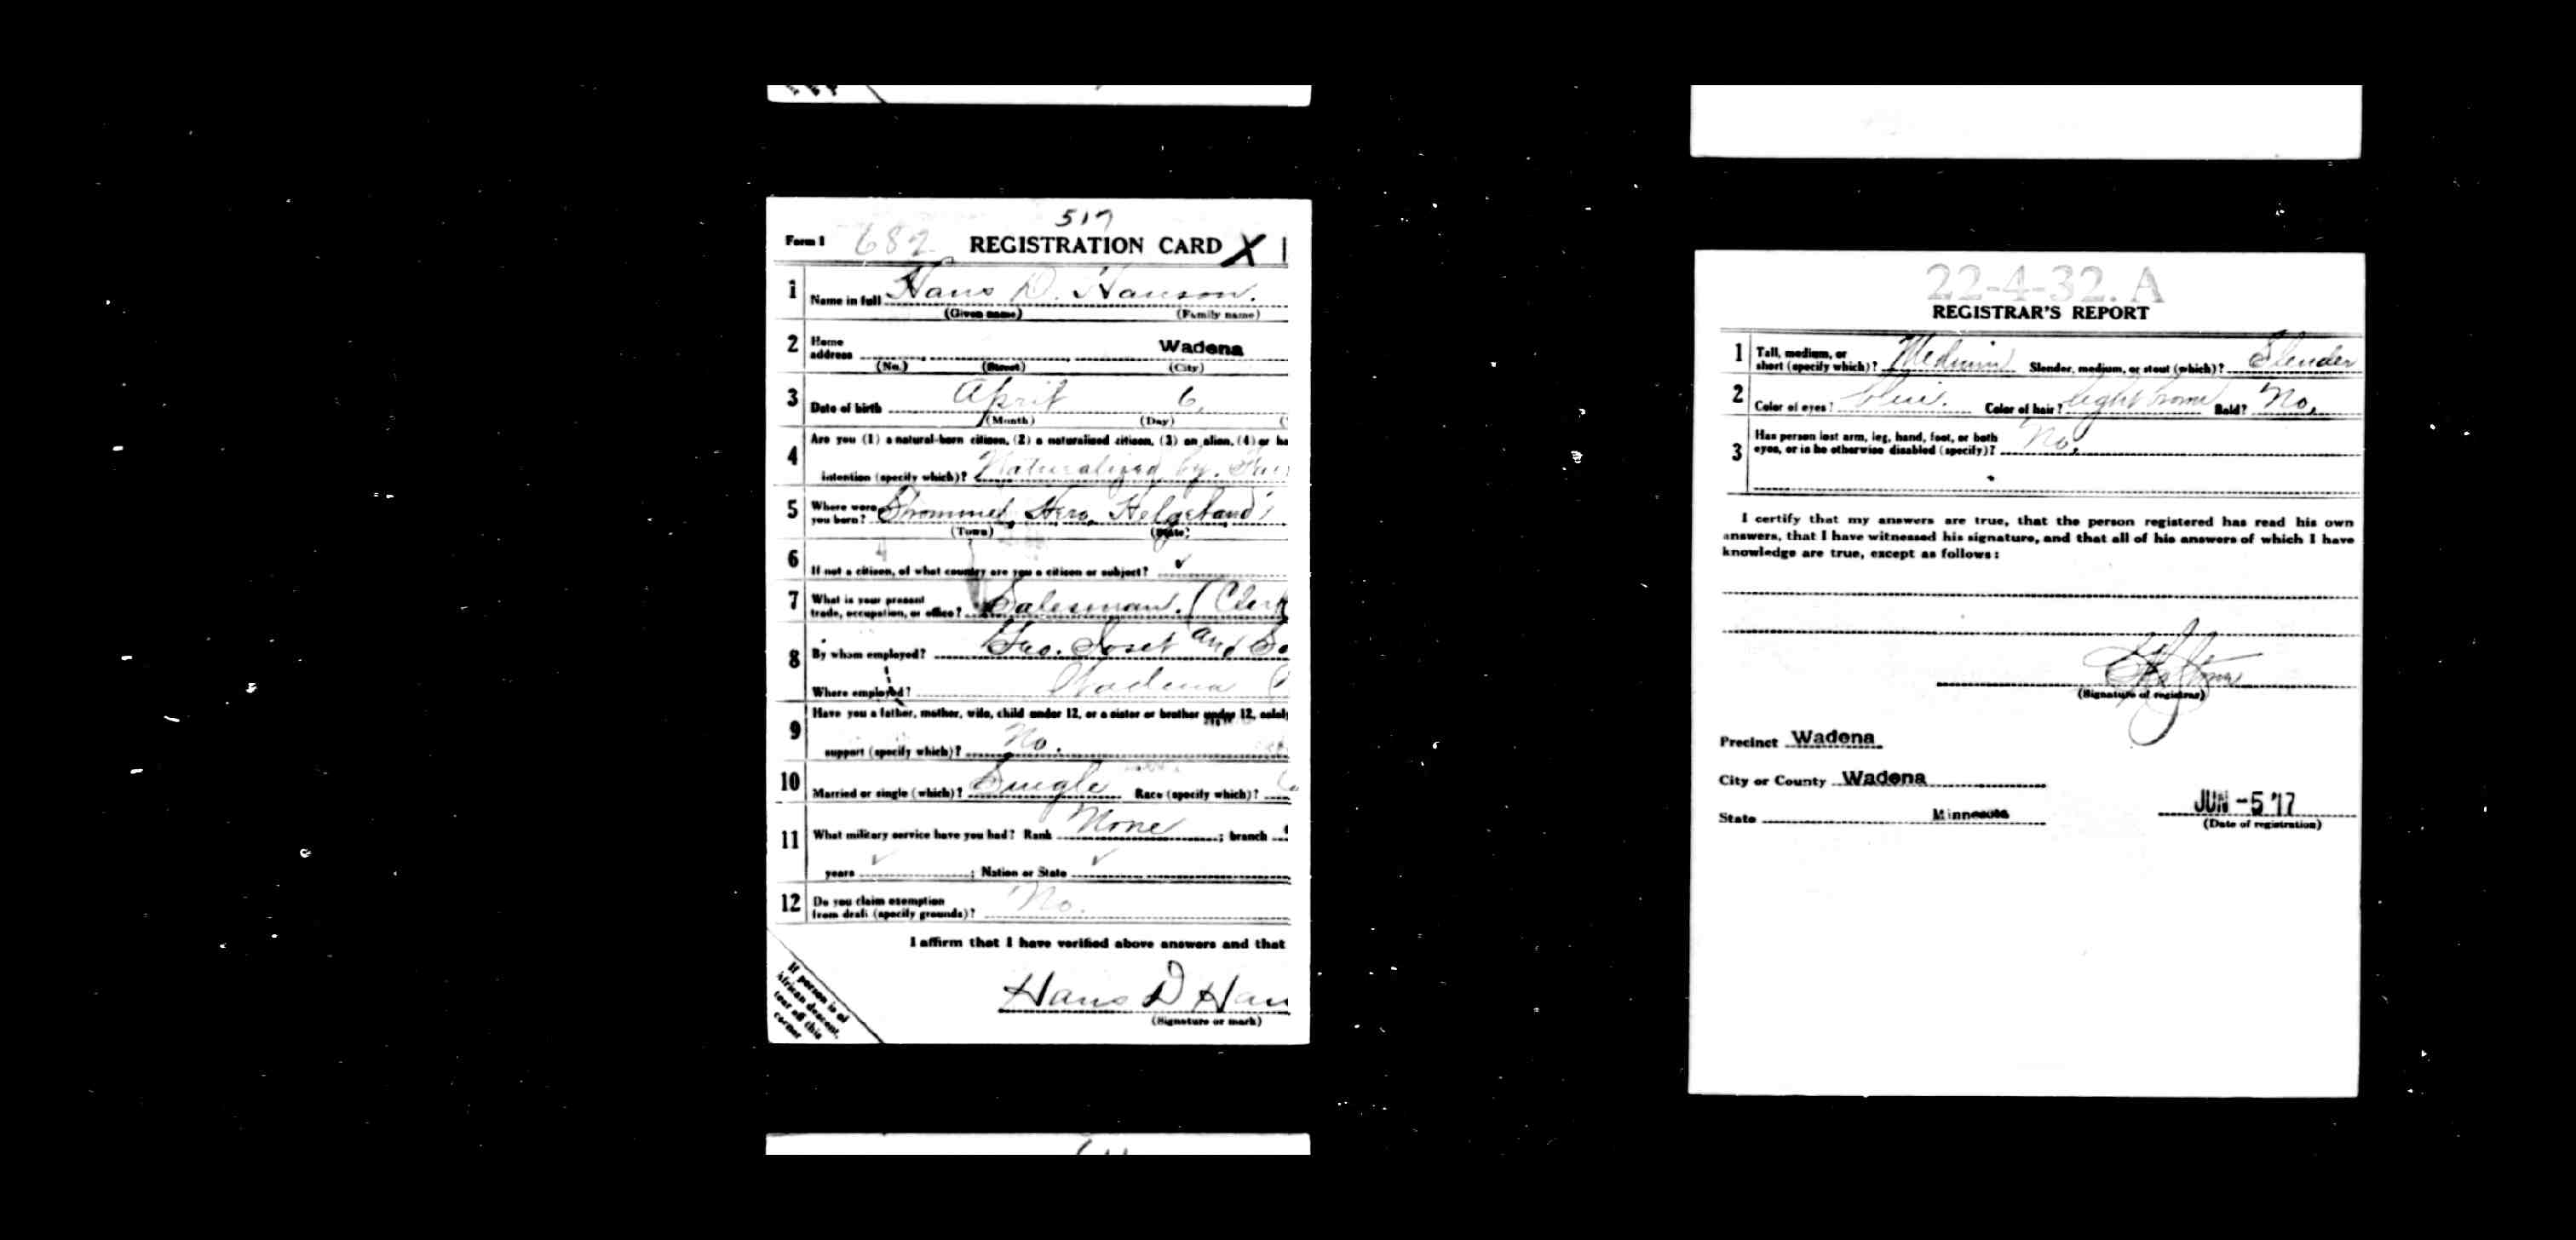 517
Form 1 682 REGISTRATION CARD X
1 Name in full Hans D. Hanson.
(Given name) (Family name)
2 Home address Wadena
(No.) (Street) (City)
3 Date of birth April 6,
(Month) (Day) (
4 Are you (1) a natural-born citizen, (2) a naturalized citizen, (3) an alien, (4) or ha
intention (specify which)? Naturalized by.
5 Where were you born? Hero, Helgeland
(Town) (State)
6 If not a citizen, of what country are you a citizen or subject?
7 What is your present trade, occupation, or office? Salesman. (Clerk
8 By whom employed? Geo. Soset and So
Where employed? Wadena
9 Have you a father, mother, wife, child under 12, or a sister or brother under 12, solely
support (specify which)? No.
10 Married or single (which)? Single Race (specify which)?
11 What military service have you had? Rank None ; branch
years ; Nation or State
12 Do you claim exemption from draft (specify grounds)? No.
I affirm that I have verified above answers and that
Hans D Han
(Signature or mark)
If person is of
African descent,
tear off this
corner
22-4-32. A
REGISTRAR'S REPORT
1 Tall, medium, or short (specify which)? Medium Slender, medium, or stout (which)? Slender
2 Color of eyes? Blue. Color of hair? light brown Bald? No.
3 Has person lost arm, leg, hand, foot, or both eyes, or is he otherwise disabled (specify)? No.
I certify that my answers are true, that the person registered has read his own
answers, that I have witnessed his signature, and that all of his answers of which I have
knowledge are true, except as follows:
(Signature of registrar)
Precinct Wadena
City or County Wadena
State Minnesota JUN -5 '17
(Date of registration)